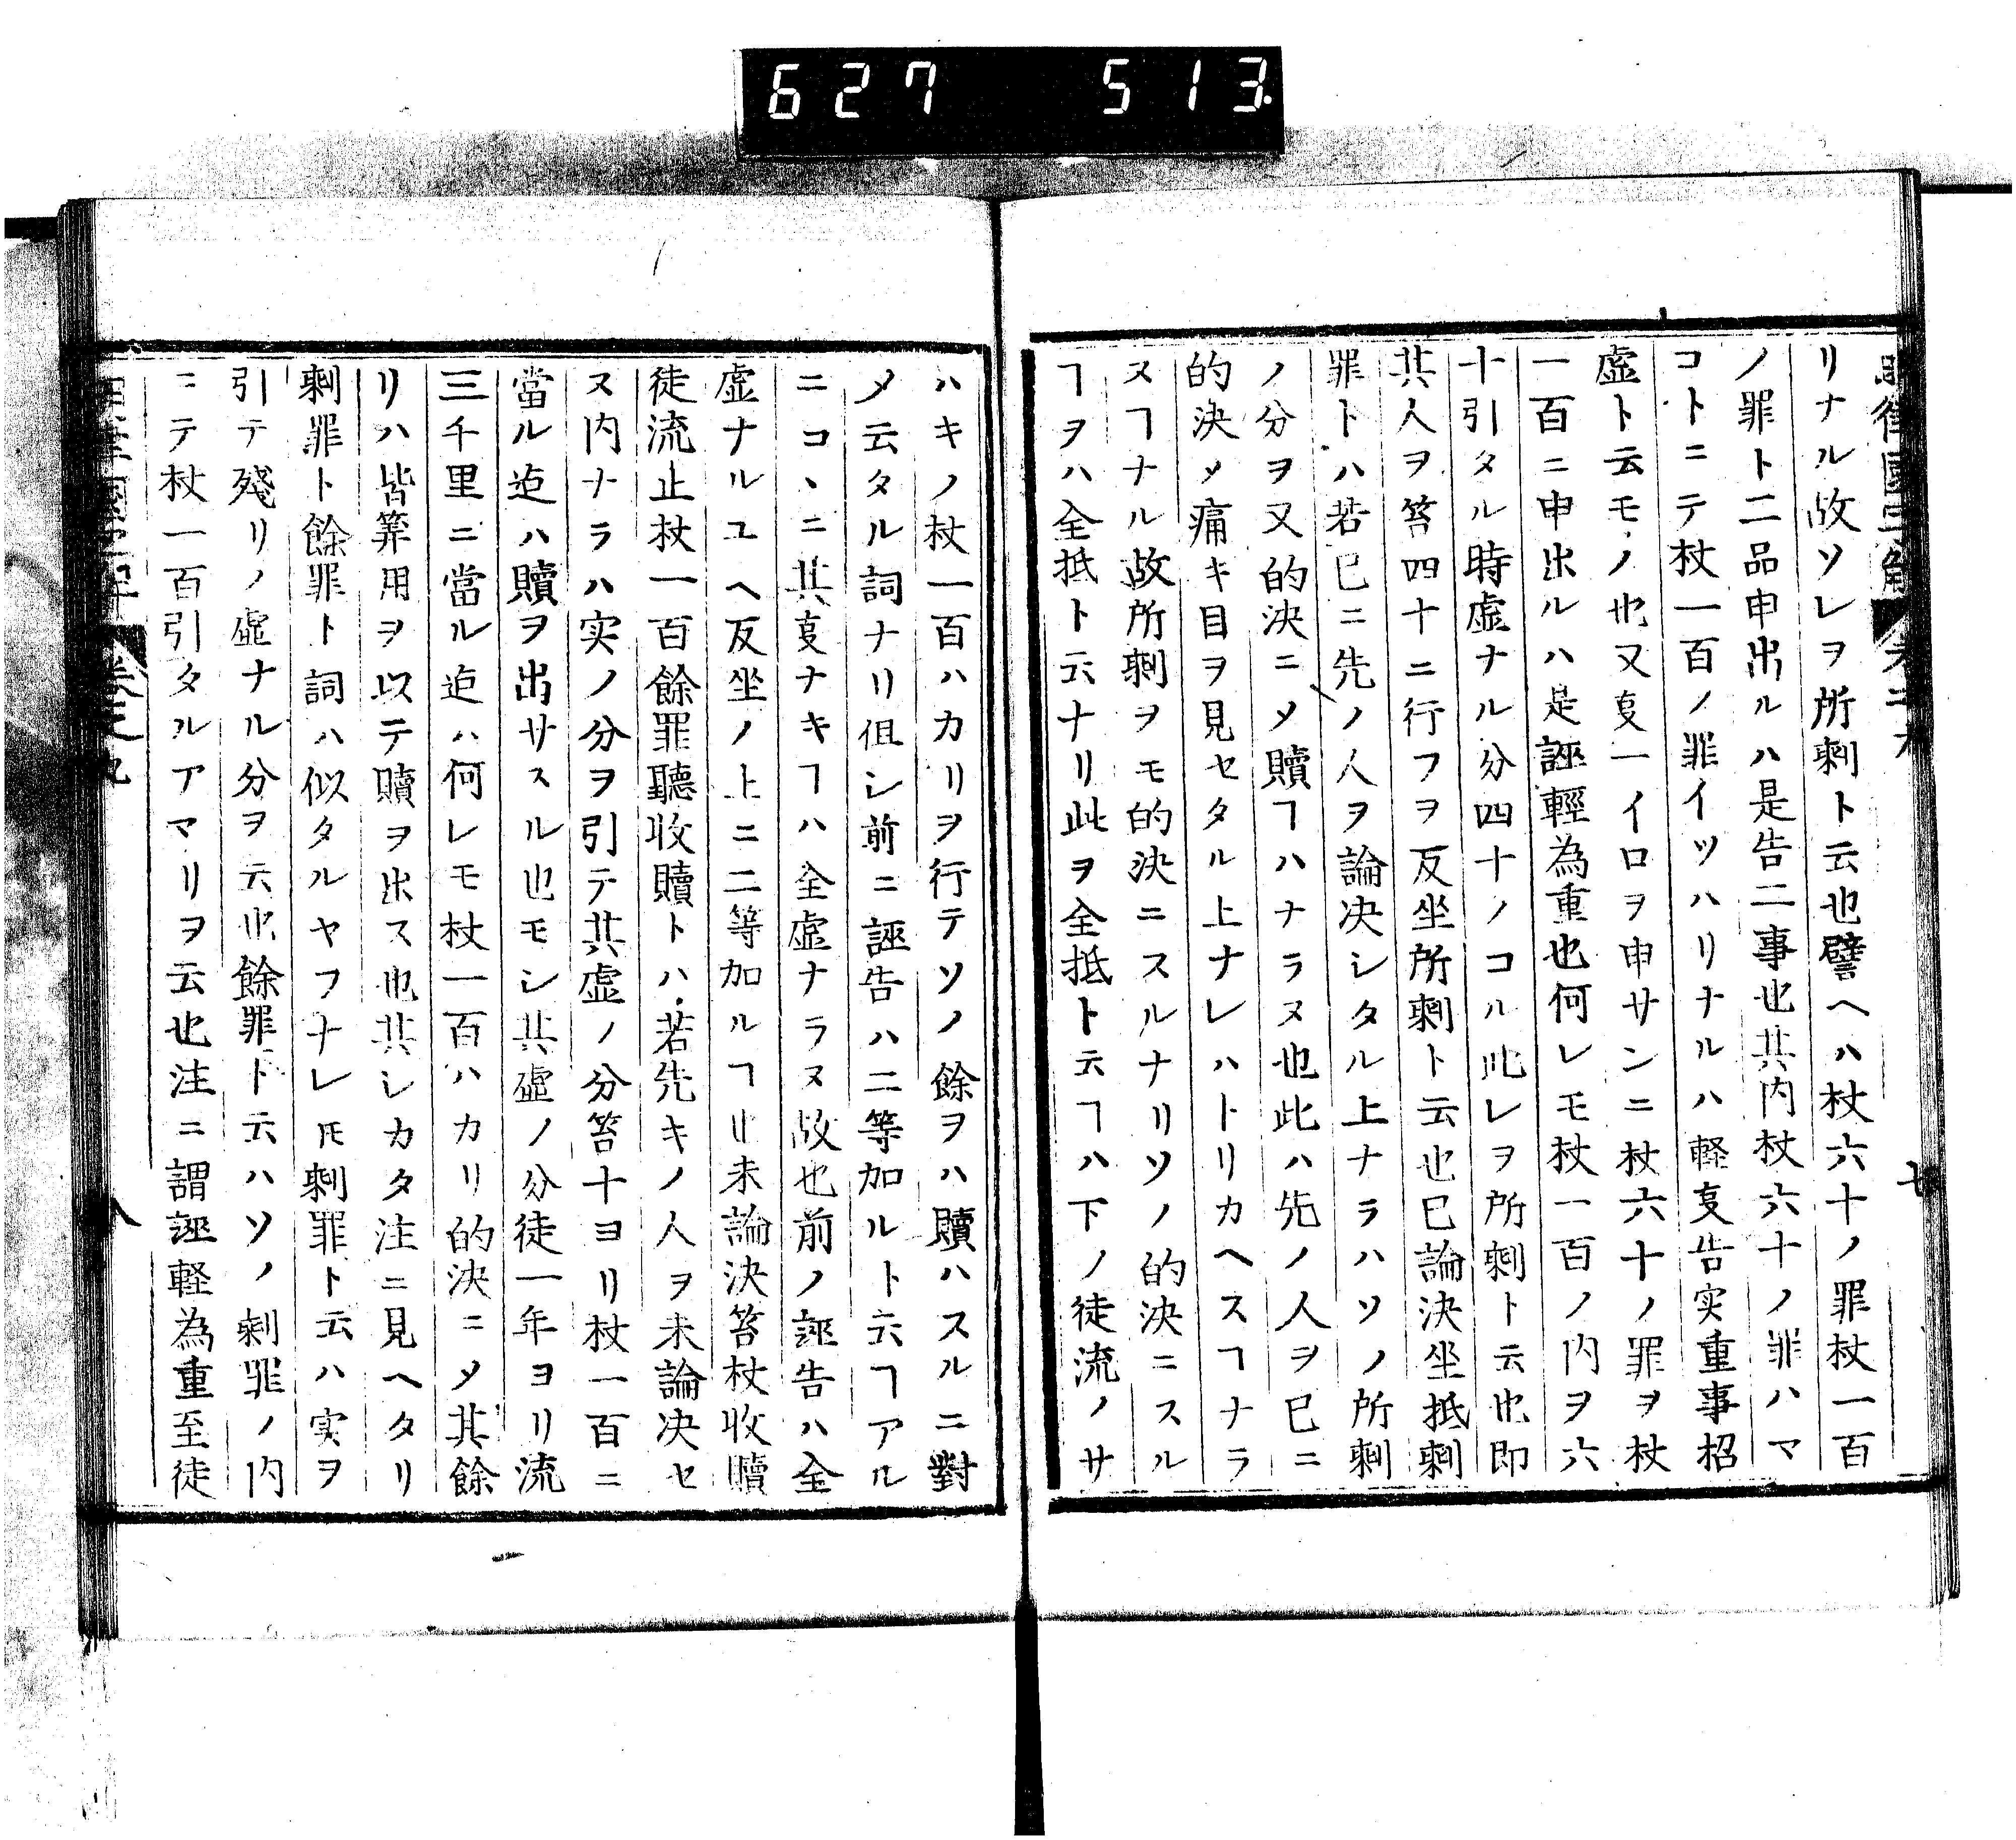 627 513
リナル故ソレヲ所剰ト云也譬ヘハ杖六十ノ罪杖一百
ノ罪ト二品申出ルハ是告二事也其内杖六十ノ罪ハマ
コトニテ杖一百ノ罪イツハリナルハ軽𫝆告实重事招
虚ト云モノ也又𫝆一イロヲ申サンニ杖六十ノ罪ヲ杖
一百ニ申出ルハ是誣輕為重也何レモ杖一百ノ内ヲ六
十引タル時虚ナル分四十ノコル此レヲ所剰ト云也即
其人ヲ笞四十ニ行フヲ反坐所剰ト云也已論決坐抵剰
罪トハ若已ニ先ノ人ヲ論决シタル上ナラハソノ所剰
ノ分ヲ又的决ニメ贖ヿハナラヌ也此ハ先ノ人ヲ已ニ
的決メ痛キ目ヲ見セタル上ナレハトリカヘスヿナラ
ヌヿナル故所剰ヲモ的決ニスルナリソノ的決ニスル
ヿヲハ全抵ト云ナリ此ヲ全抵ト云ヿハ下ノ徒流ノサ
ハキノ杖一百ハカリヲ行テソノ餘ヲハ贖ハスルニ對
メ云タル詞ナリ但シ前ニ誣告ハ二等加ルト云ヿアル
ニコヽニ其𫝆ナキヿハ全虚ナラヌ故也前ノ誣告ハ全
虚ナルユヘ反坐ノ上ニ二等加ルヿ也未論決笞杖收贖
徒流止杖一百餘罪聽收贖トハ若先キノ人ヲ未論决セ
ヌ内ナラハ实ノ分ヲ引テ其虚ノ分笞十ヨリ杖一百ニ
當ル迠ハ贖ヲ出サスル也モシ其虚ノ分徒一年ヨリ流
三千里ニ當ル迠ハ何レモ杖一百ハカリ的決ニメ其餘
リハ皆筭用ヲ以テ贖ヲ出ス也其シカタ注ニ見ヘタリ
剰罪ト餘罪ト詞ハ似タルヤフナレ𪜈剰罪ト云ハ实ヲ
引テ殘リノ虚ナル分ヲ云也餘罪ト云ハソノ剰罪ノ内
ニテ杖一百引タルアマリヲ云也注ニ謂誣軽為重至徒
八